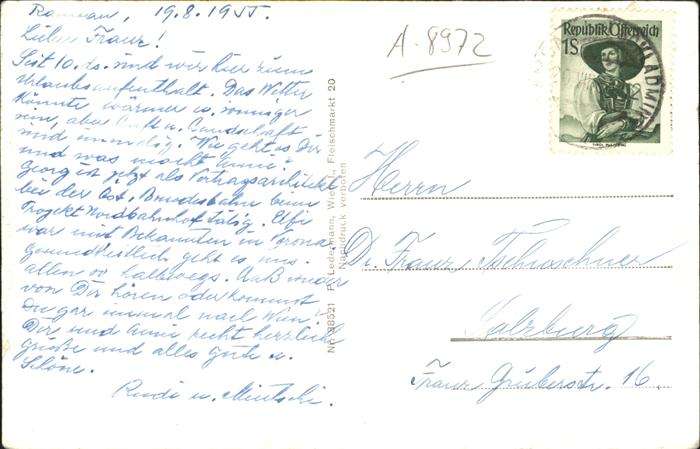 Ramsau, 19.8.1955.
Lieber Franz!
Seit 10. ds. sind wir hier zum
Urlaubsaufenthalt. Das Wetter
könnte wärmer u. sonniger
sein, aber Luft u. Landschaft
sind einmalig. Wie geht es Dir
und was macht Annie?
Georg ist jetzt als Vertragsarchitekt
bei der Öst. Bundesbahn beim
Projekt Nordbahnhof tätig. Elfi
war mit Bekannten in Verona
Gesundheitlich geht es uns
allen so halbwegs. Laß wieder
von Dir hören oder kommst
Du gar einmal nach Wien?
Dir und Annie recht herzliche
Grüße und alles Gute u.
Schöne.
Rudi u.
A-8972
Republik Österreich
1S
Herrn
Dr. Franz Tschoschner
Salzburg
Franz Gruberstr. 16.
No 38521 P. Ledermann, Wien I, Fleischmarkt 20
Nachdruck verboten